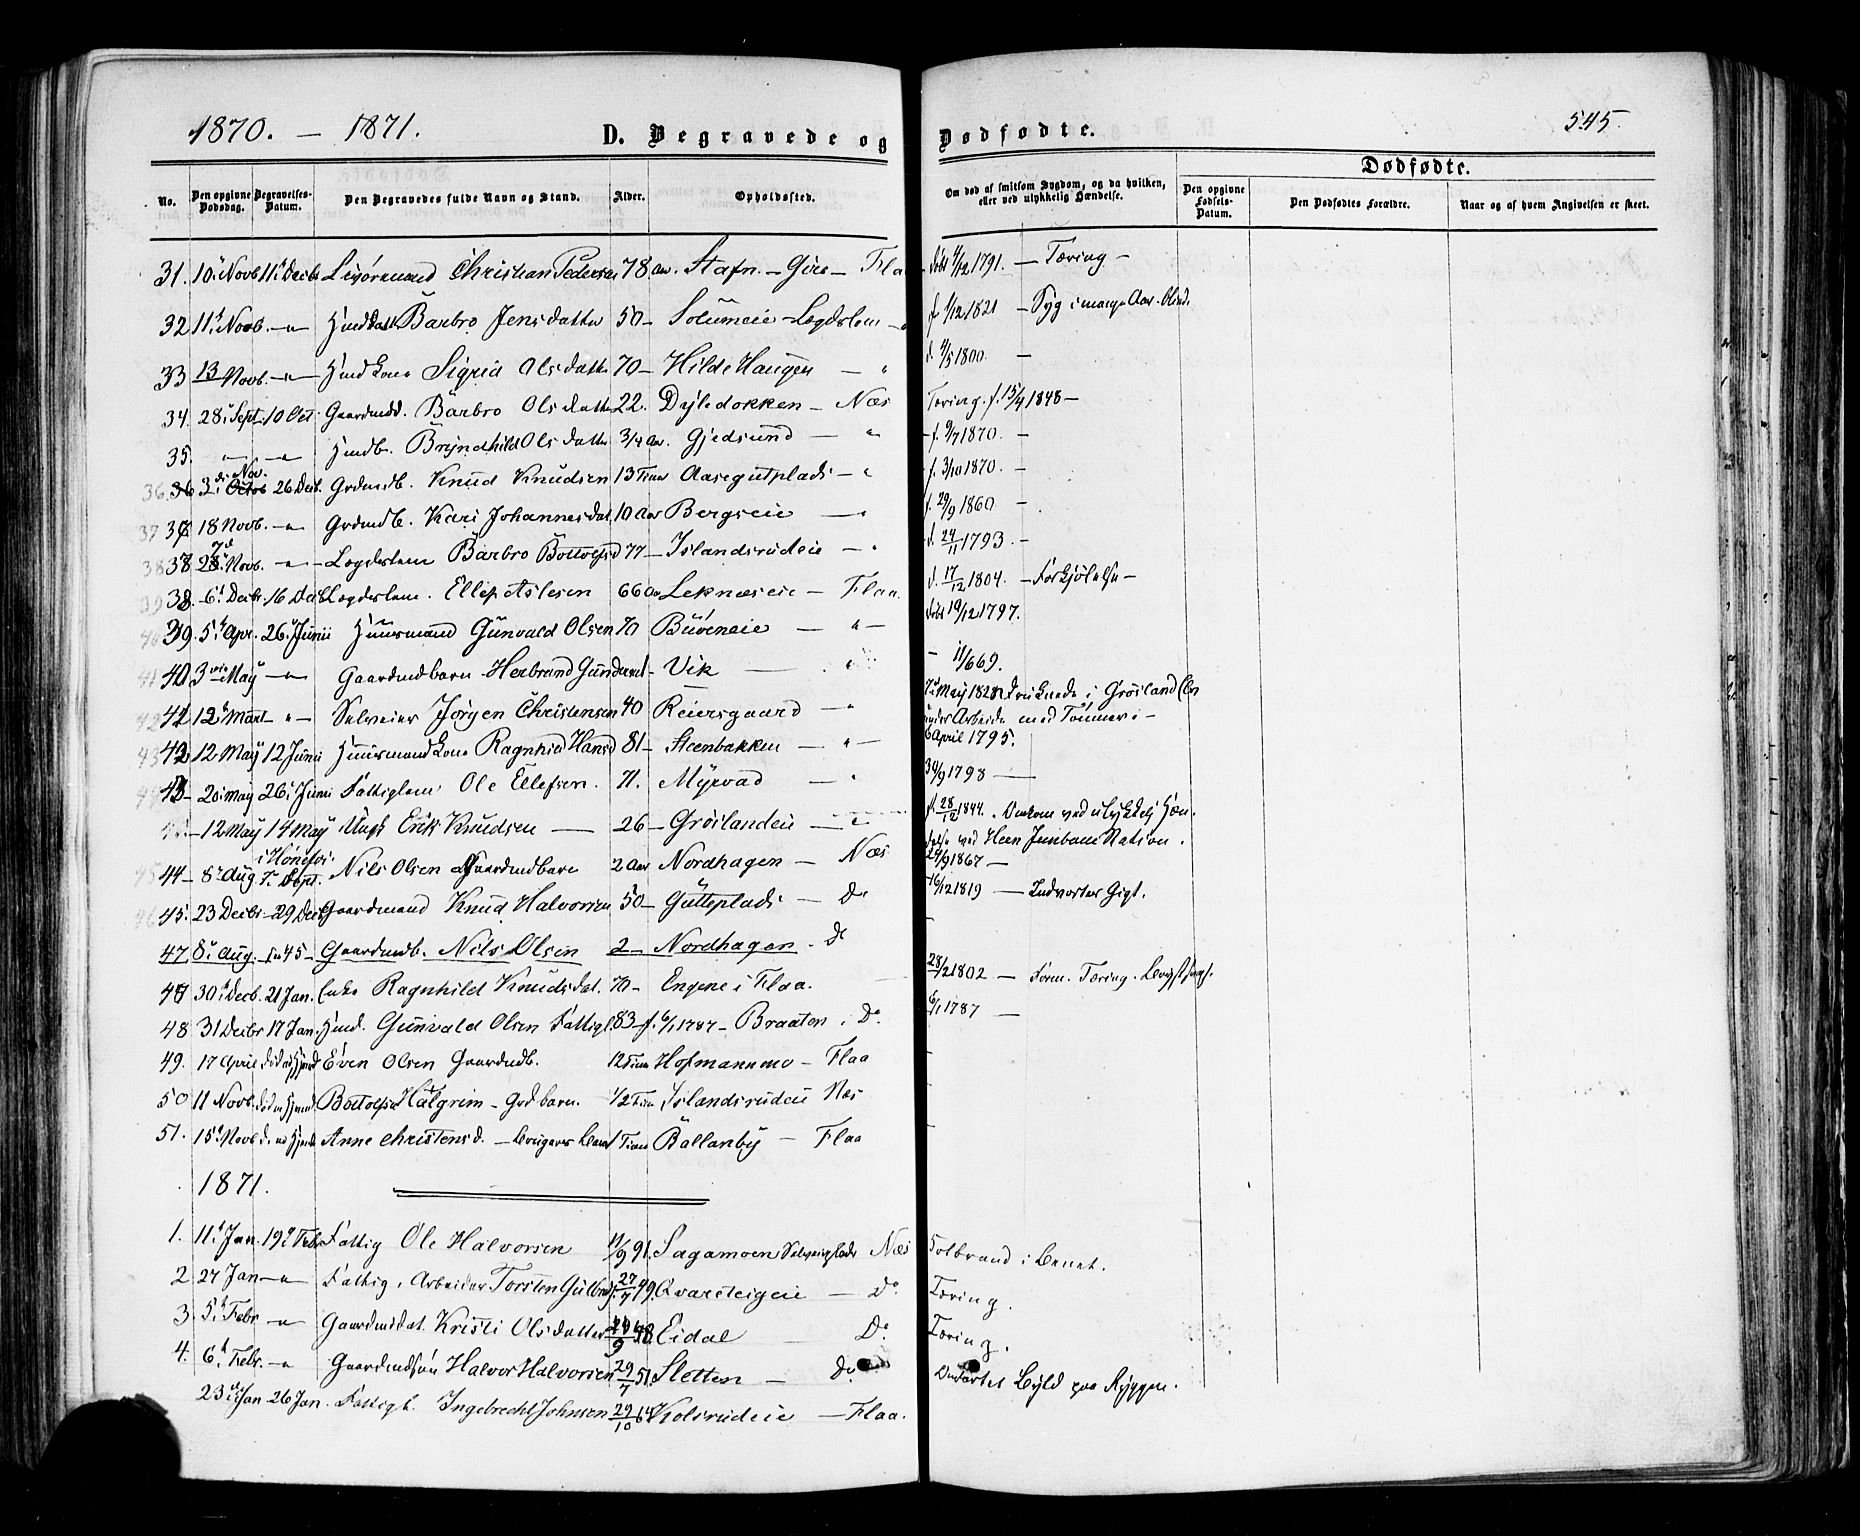 1870. — 1871.
D. Begravede og Dødfødte.
545.
Dødfødte.
No. Den opgivne Dødsdag. Begravelses-Datum. Den Begravedes fulde Navn og Stand. Alder. Opholdssted. Om død af smitsom Sygdom, og da hvilken, eller ved ulykkelig Hændelse. Den opgivne Fødsels-Datum. Den Dødfødtes Forældre. Naar og af hvem Angivelsen er skeet.
31. 10. Novb 11 Decb Christian Pedersen 78 aar. Stafn. — Flaa døbt 4/12 1791. — Tæring —
32 11. Novb. — " — Barbro Jensdatter 50 — Solumeie — Lægdslem f 1/12 1821 — Syg i mange Aar. blind.
33 13 Novb. — " — Huusmdkone Sigrid Olsdatter 70 — Hilde Haugen — " d. 4/5 1800. —
34. 28. Sept. 10 Oct. Gaardmdd. Barbro Olsdatter 22. Dyledokken — Næs Tæring. f. 15/4 1848 —
35. — " — — " — Huusmdb. Bryndhild Olsdatter 3/4 aar. Gjedsund — " — f. 9/7 1870. —
36. 36 3die Nov. Octob 26 Decb. Grdmdb. Knud Knudsen 13 Timer Aasegutplads — " — f. 3/10 1870. —
37 18 Novb. — " — Grdmdb. Kari Johannesdat. 10 Aar Bergseie — " f. 29/9 1860 —
38 Novb. — " — Lægdslem Barbro Bottolfsd 77 — Islandsrudeie — " d. 24/11 1793. —
39 6. Decbr. 16 Decb Lægdslem. Ellef Aslesen 66 Aar Leknæseie — Flaa. d. 17/12 1804. — Forkjølelse —
39 5. Apr. 26. Junii Huusmand Gunvald Olsen 70 Buveneie — " — døbt 19/12 1797.
40 3die May — " — Gaardmdbarn Herbrand 1 — Vik — " — 11/6 69.
41 12. Marts — " — Selveier Jørgen Christensen 40 Reiersgaard — " 7. May 1828 Druknede i Grøsland Elv
under Arbeide med Tømmer —
42 12 May 12 Junii Huusmandkone Ragnhild Hansd 81 — Steenbakken — " — 6 April 1795.
43 — 20. May 26. Junii Fattiglem Ole Ellefsen. 71. Myrvad — " 30/9 1798 —
— 12 May 14 May Ungk Erik Knudsen — 26 — Grøslandeie — " — f. 28/12 1844. Omkom ved ulykkelig Hæn-
i Hønefos. delse ved Heen Jernbane Station.
44 — 8. Aug Sept. Nils Olsen Gaardmdbarn 2 Aar Nordhagen — Næs 24/9 1867 —
45. 23 Decbr — 29 Decb Gaardmand Knud Halvorsen 50 — Gutteplads — Do 16/12 1819 — Indvortes Gigt.
47 8. Aug. — 45 — Gaardmdb. Nils Olsen 2 — Nordhagen — Do
47 30. Decb. 21 Jan. Enke Ragnhild Knudsdat. 70 — Engene i Flaa. 28/2 1802 — Form. Tæring.
48. 31 Decbr 17 Jan. Huusmd. Gunvald Olsen Fattigl. 83 — f. 6/1 1787 — Braaten i Do. 6/1 1787 —
49. 17 April død ad Hjemd Even Olsen Gaardmdb. 12 Timer Hofmannmo — Flaa
50 11 Novb. død ad Hjemd Bottolf Halgrim — Grdbarn. 1/2 Time Islandsrudeie Næs
51. 15. Novb d. ad Hjemd Anne Christensd. — 1 Time Ballanby — Flaa
1871.
1. 11. Jan. 19. Febr Fattig Ole Halvorsen 11/9 91. Sagamoen Selveierplads Næs Kolbrand i Benet.
2 27 Jan — " — Fattig. Arbeider Torsten Gulbr. 27/7 49. Qvarsteigeie — Do. Tæring.
3. 5. Febr — " — Gaardmddat. Kristi Olsdatter 48. Eidal Do. Tæring.
4. 6. Febr. — " Gaardmdsøn Halvor Halvorsen 29/7 51. Sletten — Do Byld paa Ryggen.
23de Jan 26 Jan. Fattigl. Ingebrecht Johnsen 29/10 64 Kolsrudeie — Flaa.